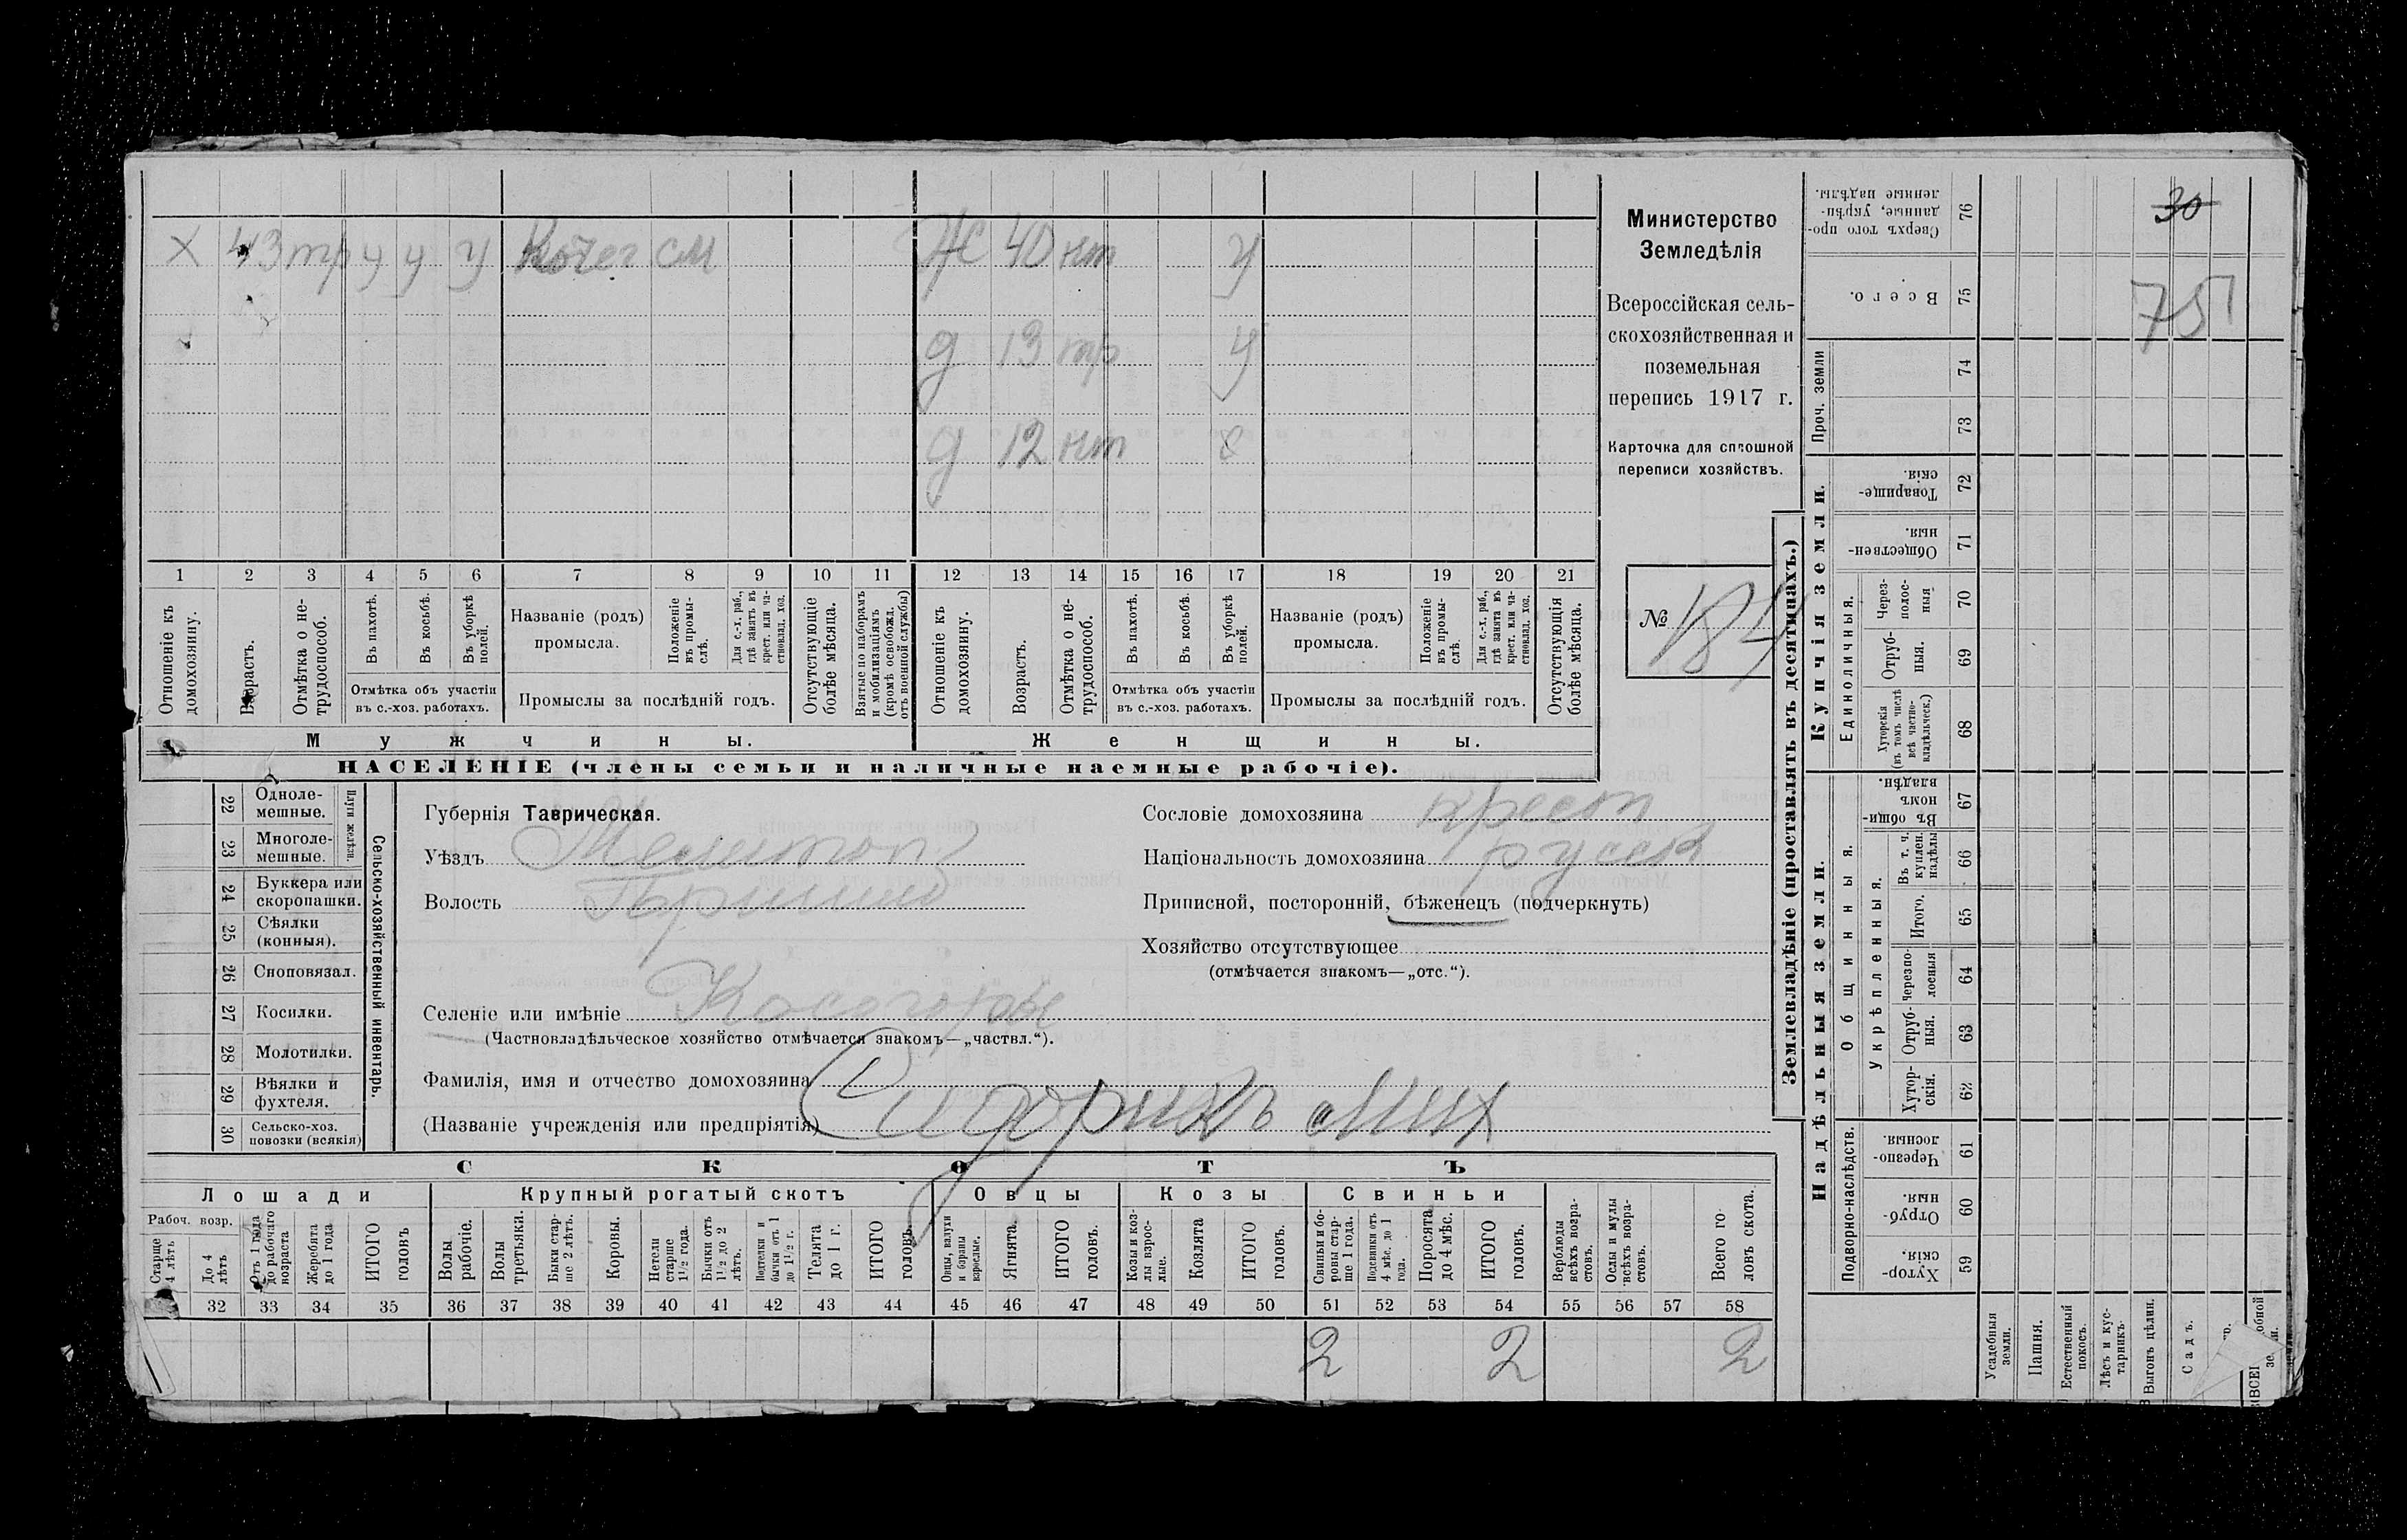 х 43 тр у у у Кочег см Ж 40 нт у
д 13 тр у
д 12 нт
1 2 3 4 5 6 7 8 9 10 11 12 13 14 15 16 17 18 19 20 21
Отношеніе къ домохозяину.
Возрастъ.
Отмѣтка о не-
трудоспособ.
Въ пахотѣ.
Въ косьбѣ.
Въ уборкѣ
полей.
Отмѣтка объ участіи
въ с.-хоз. работахъ.
Названіе (родъ)
промысла.
Положеніе
въ промы-
слѣ.
Для с.-х. раб.,
гдѣ занятъ въ
крест. или ча-
стновлад. хоз.
Промыслы за послѣдній годъ.
Отсутствующіе
болѣе мѣсяца.
Взятые по наборамъ
и мобилизаціямъ
(кромѣ освобожд.
отъ военной службы)
Отношеніе къ
домохозяину.
Возрастъ.
Отмѣтка о не-
трудоспособ.
Въ пахотѣ.
Въ косьбѣ.
Въ уборкѣ
полей.
Отмѣтка объ участіи
въ с.-хоз. работахъ.
Названіе (родъ)
промысла.
Положеніе
въ промы-
слѣ.
Для с.-х. раб.,
гдѣ занята въ
крест. или ча-
стновлад. хоз.
Промыслы за послѣдній годъ.
Отсутствующія
болѣе мѣсяца.
Мужчины.
Женщины.
НАСЕЛЕНІЕ (члены семьи и наличные наемные рабочіе).
Министерство
Земледѣлія
Всероссійская сель-
скохозяйственная и
поземельная
перепись 1917 г.
Карточка для сплошной
переписи хозяйствъ.
№ 184
22 Одноле-
мешные.
23 Многоле-
мешные.
Плуги желѣзн.
24 Буккера или
скоропашки.
25 Сѣялки
(конныя).
26 Сноповязал.
27 Косилки.
28 Молотилки.
29 Вѣялки и
фухтеля.
30 Сельско-хоз.
повозки (всякія)
Сельско-хозяйственный инвентарь.
Губернія Таврическая.
Уѣздъ Мелитоп
Волость
Селеніе или имѣніе
(Частновладѣльческое хозяйство отмѣчается знакомъ—„частвл.“).
Фамилія, имя и отчество домохозяина
(Названіе учрежденія или предпріятія) Мих
Сословіе домохозяина крест
Національность домохозяина русск
Приписной, посторонній, бѣженецъ (подчеркнуть)
Хозяйство отсутствующее
(отмѣчается знакомъ—„отс.“).
СКОТЪ
Лошади
Крупный рогатый скотъ
Овцы
Козы
Свиньи
Рабоч. возр.
Старше
4 лѣтъ
До 4
лѣтъ
Отъ 1 года
до рабочаго
возраста
Жеребята
до 1 года
ИТОГО
головъ
Волы
рабочіе.
Волы
третьяки.
Быки стар-
ше 2 лѣтъ.
Коровы.
Нетели
старше
1 1/2 года.
Бычки отъ
1 1/2 до 2
лѣтъ.
Подтелки и
бычки отъ 1
до 1 1/2 г.
Телята
до 1 г.
ИТОГО
головъ.
Овцы, валухи
и бараны
взрослые.
Ягнята.
ИТОГО
головъ.
Козы и коз-
лы взрос-
лые.
Козлята
ИТОГО
головъ.
Свиньи и бо-
ровы стар-
ше 1 года.
Подсвинки отъ
4 мѣс. до 1
года.
Поросята
до 4 мѣс.
ИТОГО
головъ.
Верблюды
всѣхъ возра-
стовъ.
Ослы и мулы
всѣхъ возра-
стовъ.
Всего го-
ловъ скота.
32 33 34 35 36 37 38 39 40 41 42 43 44 45 46 47 48 49 50 51 52 53 54 55 56 57 58
2 2 2
Землевладѣніе (проставлять въ десятинахъ.)
Купчія земли.
Надѣльныя земли.
Сверхъ того про-
данные, укрѣп-
ленные надѣлы. 76
Всего. 75
Проч. земли
74
73
Товарище-
скія. 72
Обществен-
ныя. 71
Единоличныя.
Через-
полос-
ныя 70
Отруб-
ныя. 69
Хуторскія
(въ томъ числѣ
всѣ частно-
владѣльческ.) 68
Общинныя.
Въ общи-
номъ
владѣн. 67
Укрѣпленныя.
Въ т. ч.
куплен.
надѣлы 66
Итого. 65
Черезпо-
лосныя 64
Отруб-
ныя. 63
Хутор-
скія. 62
Подворно-наслѣдств.
Черезпо-
лосныя. 61
Отруб-
ныя. 60
Хутор-
скія. 59
Усадебныя
земли.
Пашня.
Естественный
покосъ.
Лѣсъ и кус-
тарникъ.
Выгонъ цѣлин.
Садъ.
30
75